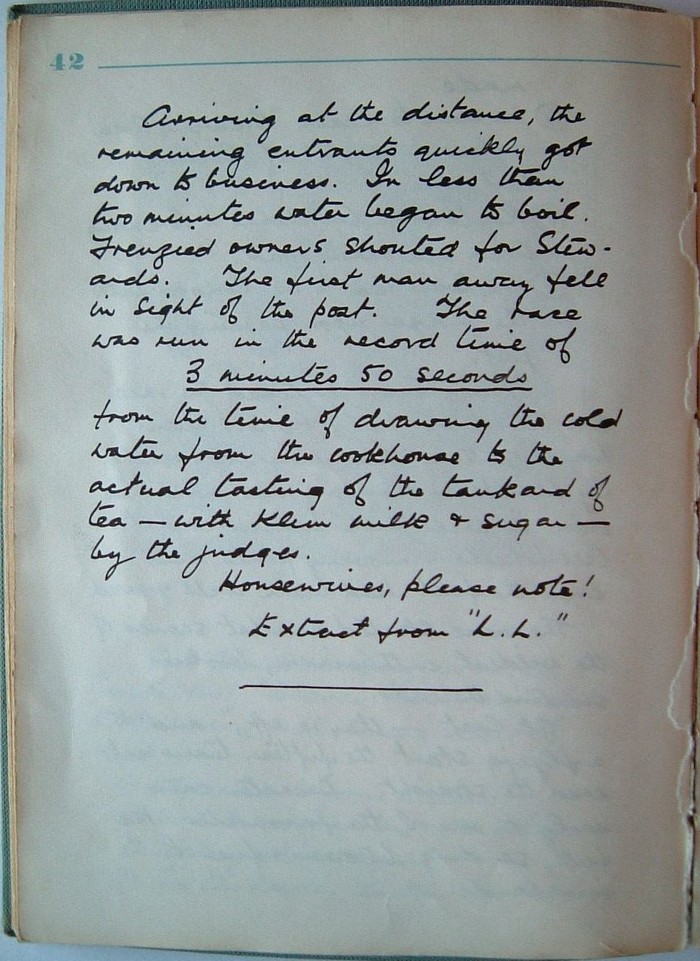 42
Arriving at the distance, the
remaining entrants quickly got
down to business. In less than
two minutes water began to boil.
Frenzied owners shouted for Stew-
ards. The first man away fell
in sight of the post. The race
was run in the record time of
3 minutes 50 seconds
from the time of drawing the cold
water from the cookhouse to the
actual tasting of the tankard of
tea — with Klim milk & sugar —
by the judges.
Housewives, please note!
Extract from "L.L."